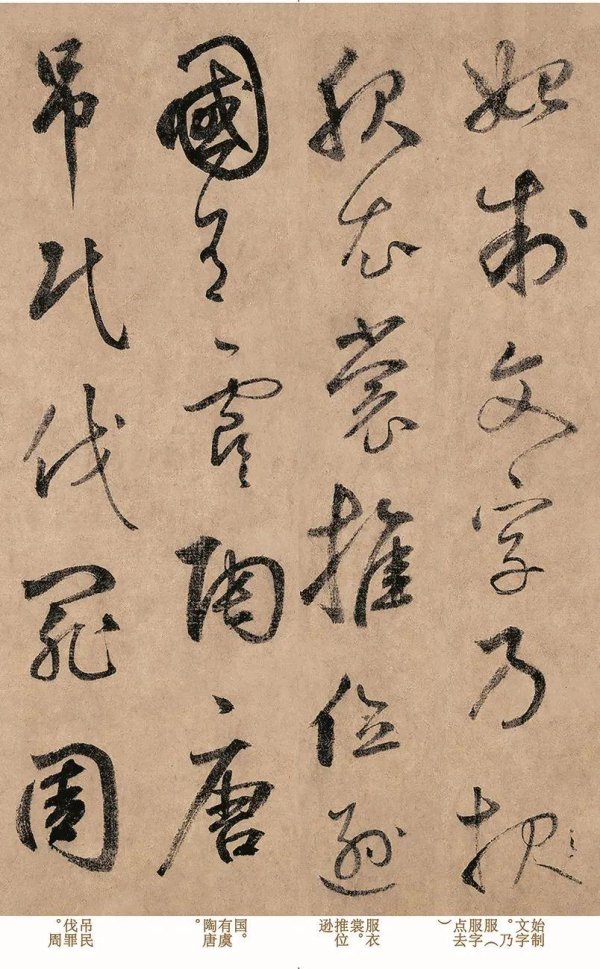 始制文字乃服
服衣裳推位遜
國有虞陶唐
吊民伐罪周
始制文字。乃服（服字点去）
服衣裳。推位逊
国。有虞陶唐。
吊民伐罪。周